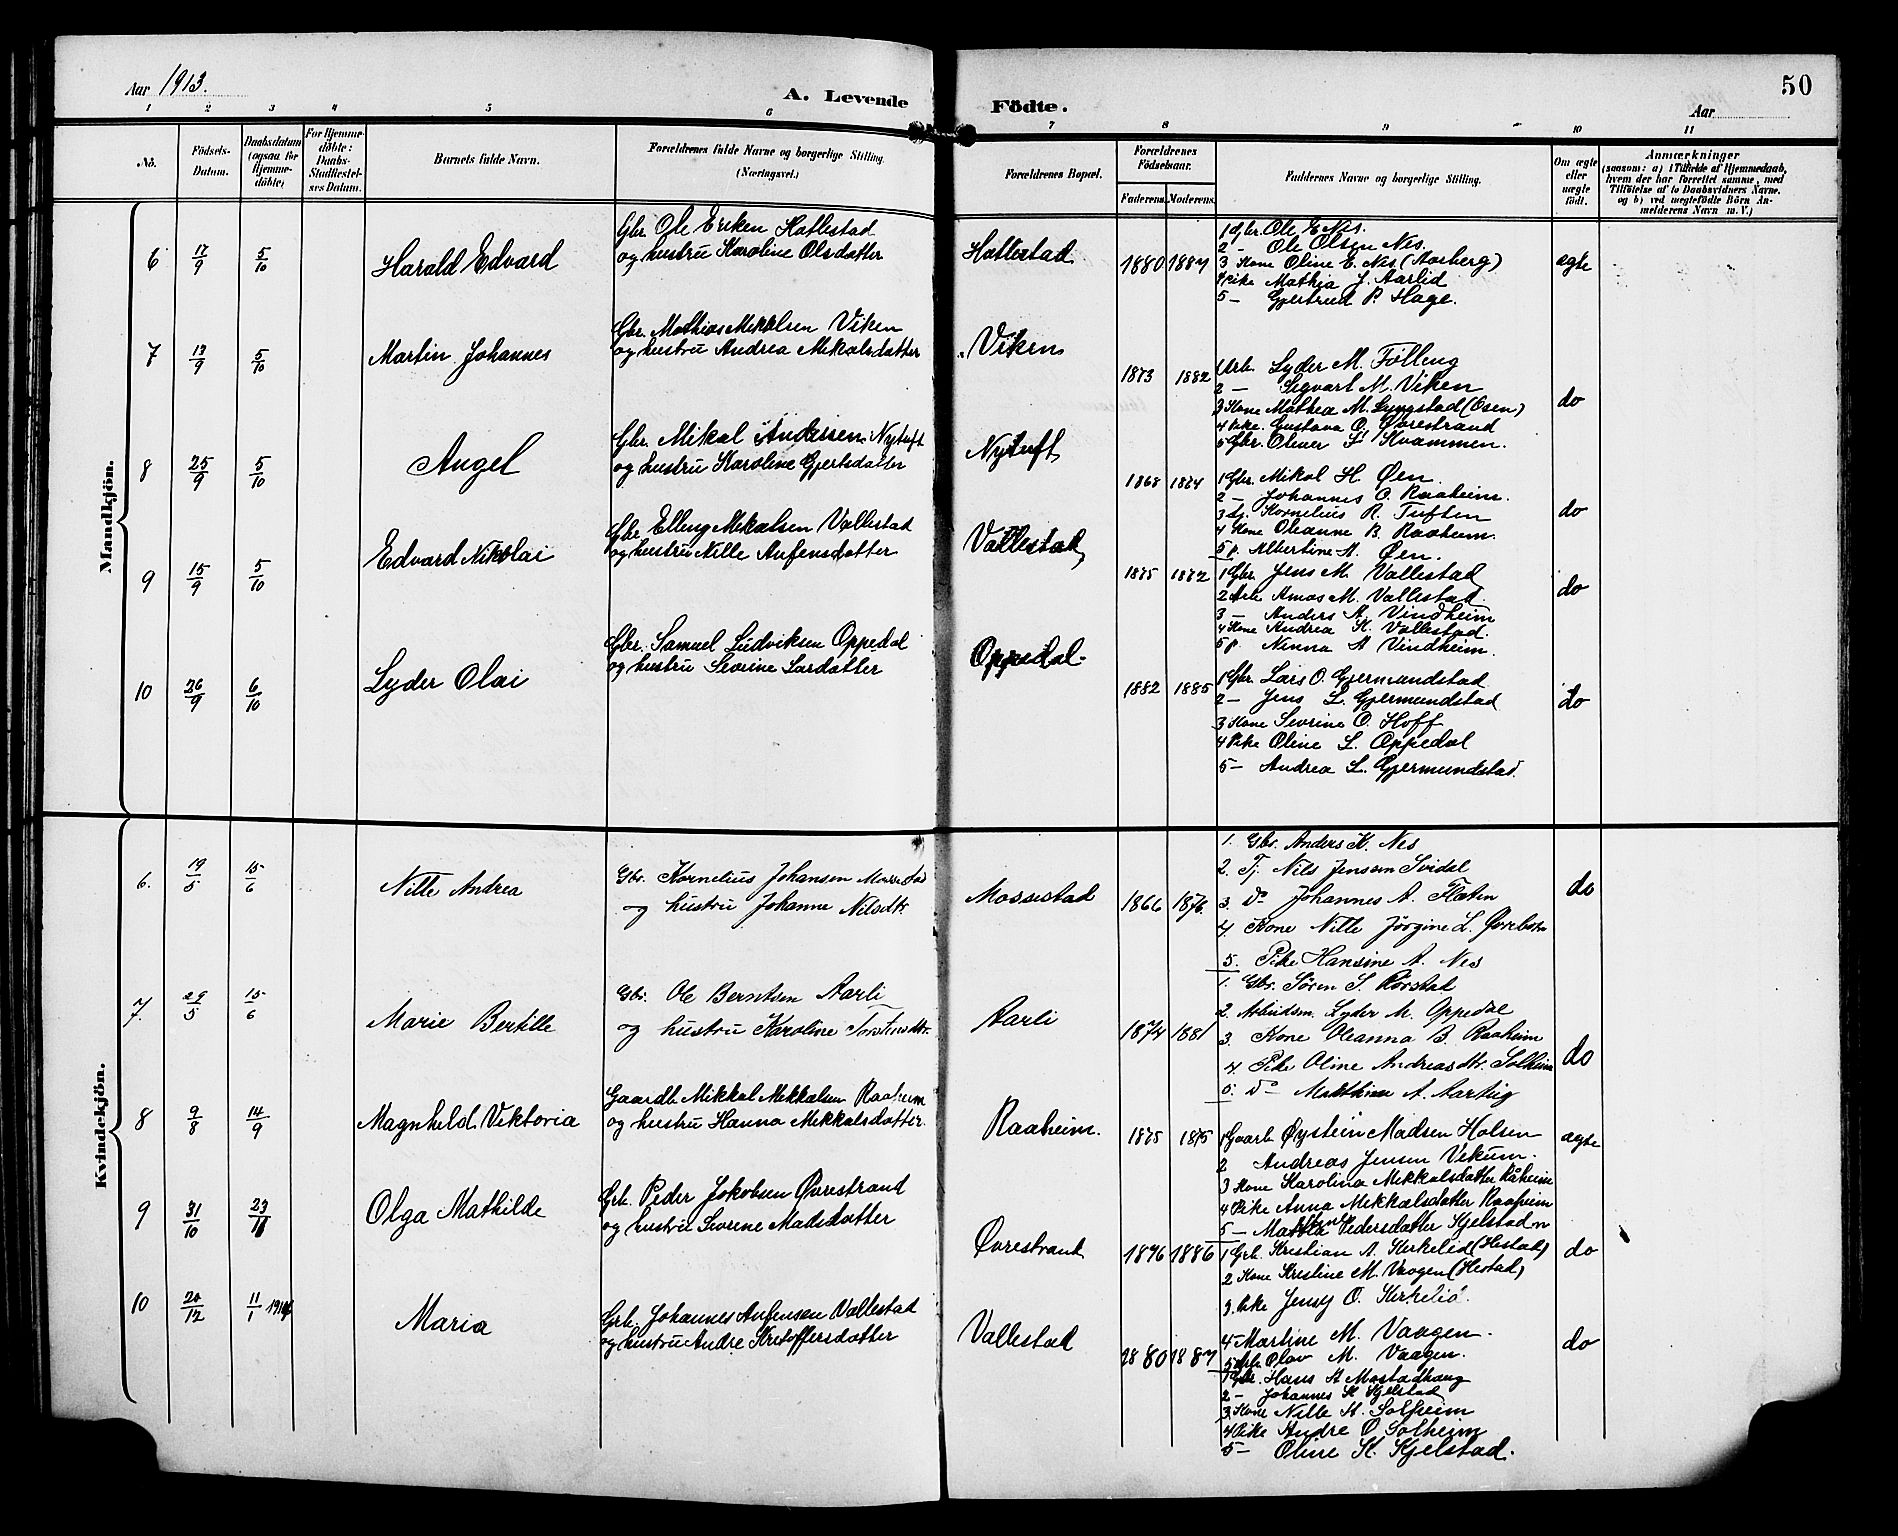 Aar 1913.
A. Levende
Födte.
50
Aar
1 2 3 4 5 6 7 8 9 10 11
No.
Födsels-Datum.
Daabsdatum (ogsaa for Hjemme-döbte)
For Hjemme-döbte: Daabs-Stadfæstel-ses Datum.
Barnets fulde Navn.
Forældrenes fulde Navne og borgerlige Stilling. (Næringsvei.)
Forældrenes Bopæl.
Forældrenes Födselsaar.
Faderens. Moderens.
Faddernes Navne og borgerlige Stilling.
Om ægte eller uægte födt.
Anmærkninger
(saasom: a) i Tilfælde af Hjemmedaab,
hvem der har forrettet samme, med
Tilföielse af to Daabsvidners Navne.
og b) ved uægtefödte Börn An-
melderens Navn m. V.)
Mandkjön.
6 17/9 5/10 Harald Edvard
Gbr. Ole Eriken Hatlestad
og hustru Karoline Olsdatter
Hatlestad 1880 1887
1 Gbr. Ole E. Nes.
2 - Ole Olsen Nes.
3 Kone Oline E. Nes (Aarberg)
4 Pike Mathia J. Aarlid
5 - Gjertrud P. Hage.
ægte
7 13/9 5/10 Martin Johannes
Gbr. Mathias Mikkelsen Viken
og hustru Andrea Mikalsdatter
Viken 1873 1882
1 Arb. Lyder M. Fölling
2 - Sigvart M. Viken
3 Kone Mathea M. Lyngstad (Osen)
4 Pike. Gustava O. Øvrestrand
5 Gbr. Oliver S. Kvammen.
do
8 25/9 5/10 Angel
Gbr. Mikal Andersen Nytuft
og hustru Karoline Gjertsdatter
Nytuft 1868 1874
1 Gbr. Mikal H. Øen.
2 - Johannes O. Raaheim.
3 Tj. Kornelius R. Tuften
4 Kone Oleanne B. Raaheim.
5 p. Albertine A. Øen.
do
9 15/9 5/10 Edvard Nikolai
Gbr. Elling Mikalsen Vallestad
og hustru Nille Anfensdatter
Vallestad 1875 1872
1 Gbr. Jens M. Vallestad
2 Arb Amas M. Vallestad.
3 - Anders A. Vindheim
4 Kone Andrea K. Vallestad.
5 p. Ninna A Vindheim.
do
10 26/9 6/10 Lyder Olai
Gbr. Samuel Ludviksen Oppedal
og hustru Severine Larsdatter
Oppedal 1882 1885
1 Gbr. Lars O. Gjermundstad
2 - Jens L. Gjermundstad
3 Kone Sevrine O. Hoff
4 Pike Oline L. Oppedal
5 - Andrea L. Gjermundstad.
do
Kvindekjön.
6. 19/5 15/6 Nille Andrea
Gbr. Kornelius Johansen
og hustru Johanne Nilsdtr.
Massestad 1866 1876.
1. Gbr. Anders K. Nes
2. Tj. Nils Jensen Svidal
3. Do Johannes A. Flaten
4. Kone Nille Jørgine L.
5. Pike Hansine A. Nes
do
7. 29/5 15/6 Marie Bertille
Gbr. Ole Berntsen Aarli
og hustru Karoline
Aarli 1874 1881
1. Gbr. Søren S. Rørstad
2. Arbeidsm. Lyder M. Oppedal
3. Kone Oleanna B. Raaheim
4 Pike Oline Andreasdtr. Solheim
5. Do A.
do
8 9/8 14/9 Magnhild Viktoria
Gaardb. Mikkal Mikkalsen Raaheim
og hustru Hanna Mikkalsdatter.
Raaheim. 1875 1875
1 Gaarb Øystein Madsen Holsen
2 Andreas Jensen Vikum.
3 Kone Karolina Mikkalsdatter Råheim
4 Pike Anna Mikkalsdatter Raaheim
5 - Pedersdatter Kjelstad
ægte
9 31/10 23/11 Olga Mathilde
Grb. Peder Jakobsen Øvrestrand
og hustru Severine Madsdatter
Øvrestrand 1876 1886
1 Grb. Kristian A. Kirkelid (Hestad)
2 Kone Kristine M. Vaagen (Hestad)
3. Pike Jensy O. Kirkelid.
4 - Martine M. Vaagen.
5 Arb. Olav M. Vaagen.
do
10 20/12 11/1 1914 Maria
Grb. Johannes Anfensen Vallestad
og hustru Andre Kristoffersdatter
Vallestad 1880 1887
1 Gbr. Hans A Mostadhaug
2 - Johannes K Kjelstad
3 Kone Nille H. Solheim
4 Pike Andre O Solheim
5 - Oline K. Kjelstad.
do